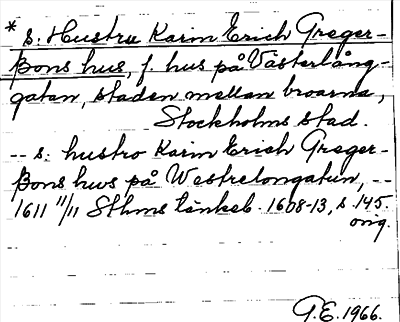 * s. Hustru Karin Erich Greger-
ßons hus, f. hus på Västerlång-
gatan, staden mellan broarna,
Stockholms stad.
-- s. hustro Karin Erich Greger-
ßons hus på Westrelongatun, --
1611 11/11 Sthms tänkeb. 1608-13, s. 145.
orig.
G.E. 1966.